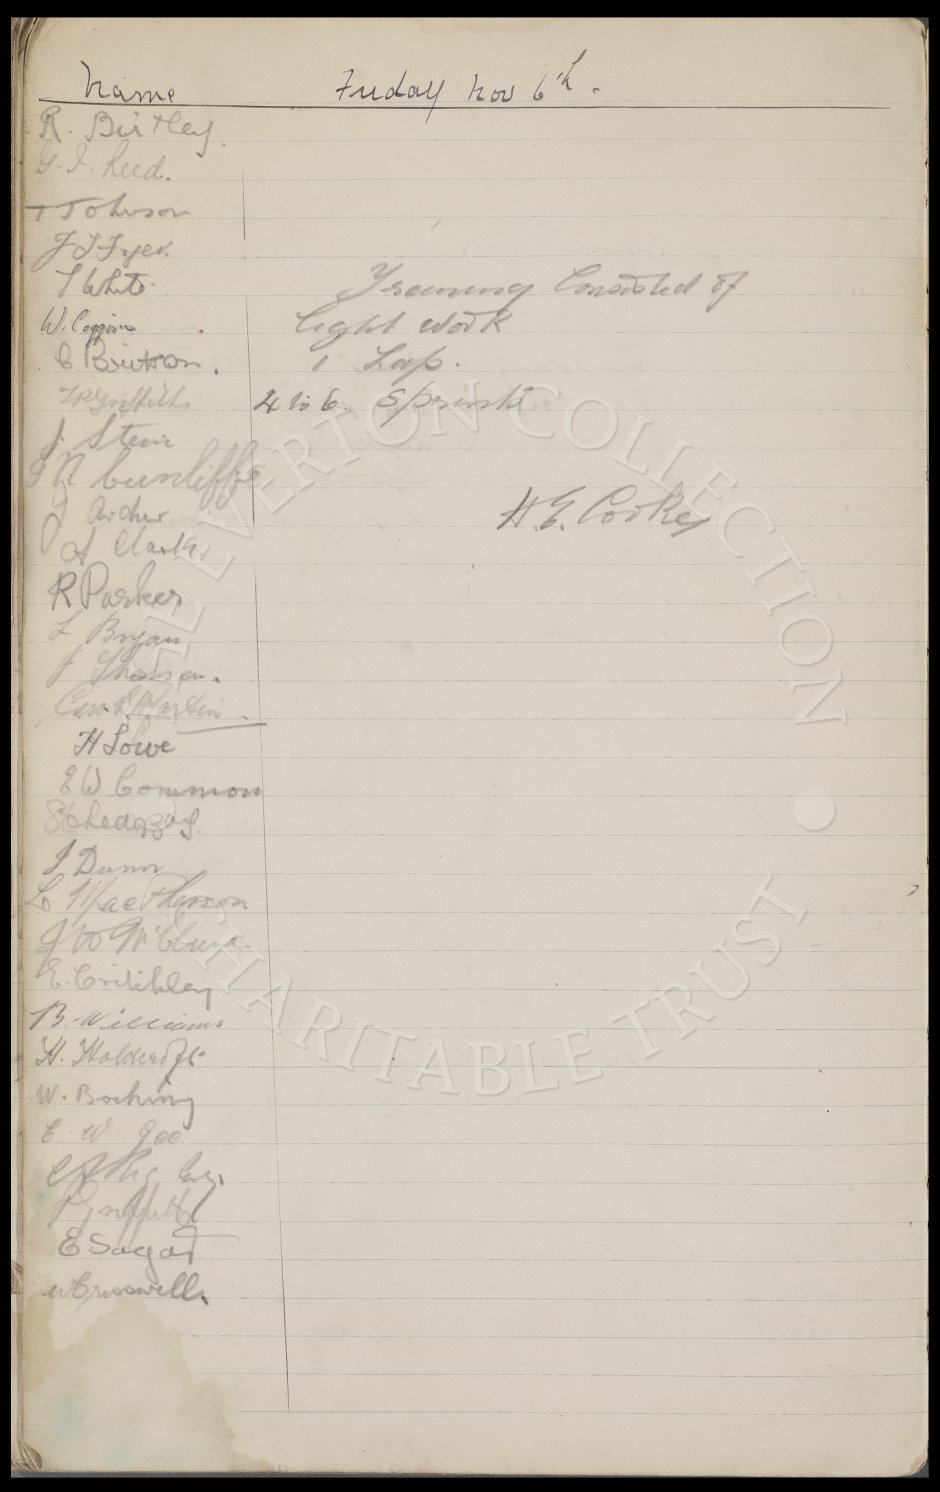 Name Friday Nov 6th.
R. Birtley.
G. I. Reed.
T Johnson
J L Fryer.
T White.
Training Consisted of
W. Coggins
light work
C Britton.
1 Lap.
T P Griffiths
4 to 6. Sprints
J Stein
J N Cunliffe
J Archer
H. E. Cooke
A Clarke
R Parker
L Bryan
J Thomson.
Geo. S. Martin.
H Lowe
E W Common
S Chedgzoy.
J Dunn
L MacPherson
J W McClure.
E. Critchley
B. Williams
H. Holdcroft
W. Bocking
C W Gee
P Griffiths
E Sagar
W Cresswell.
THE EVERTON COLLECTION CHARITABLE TRUST